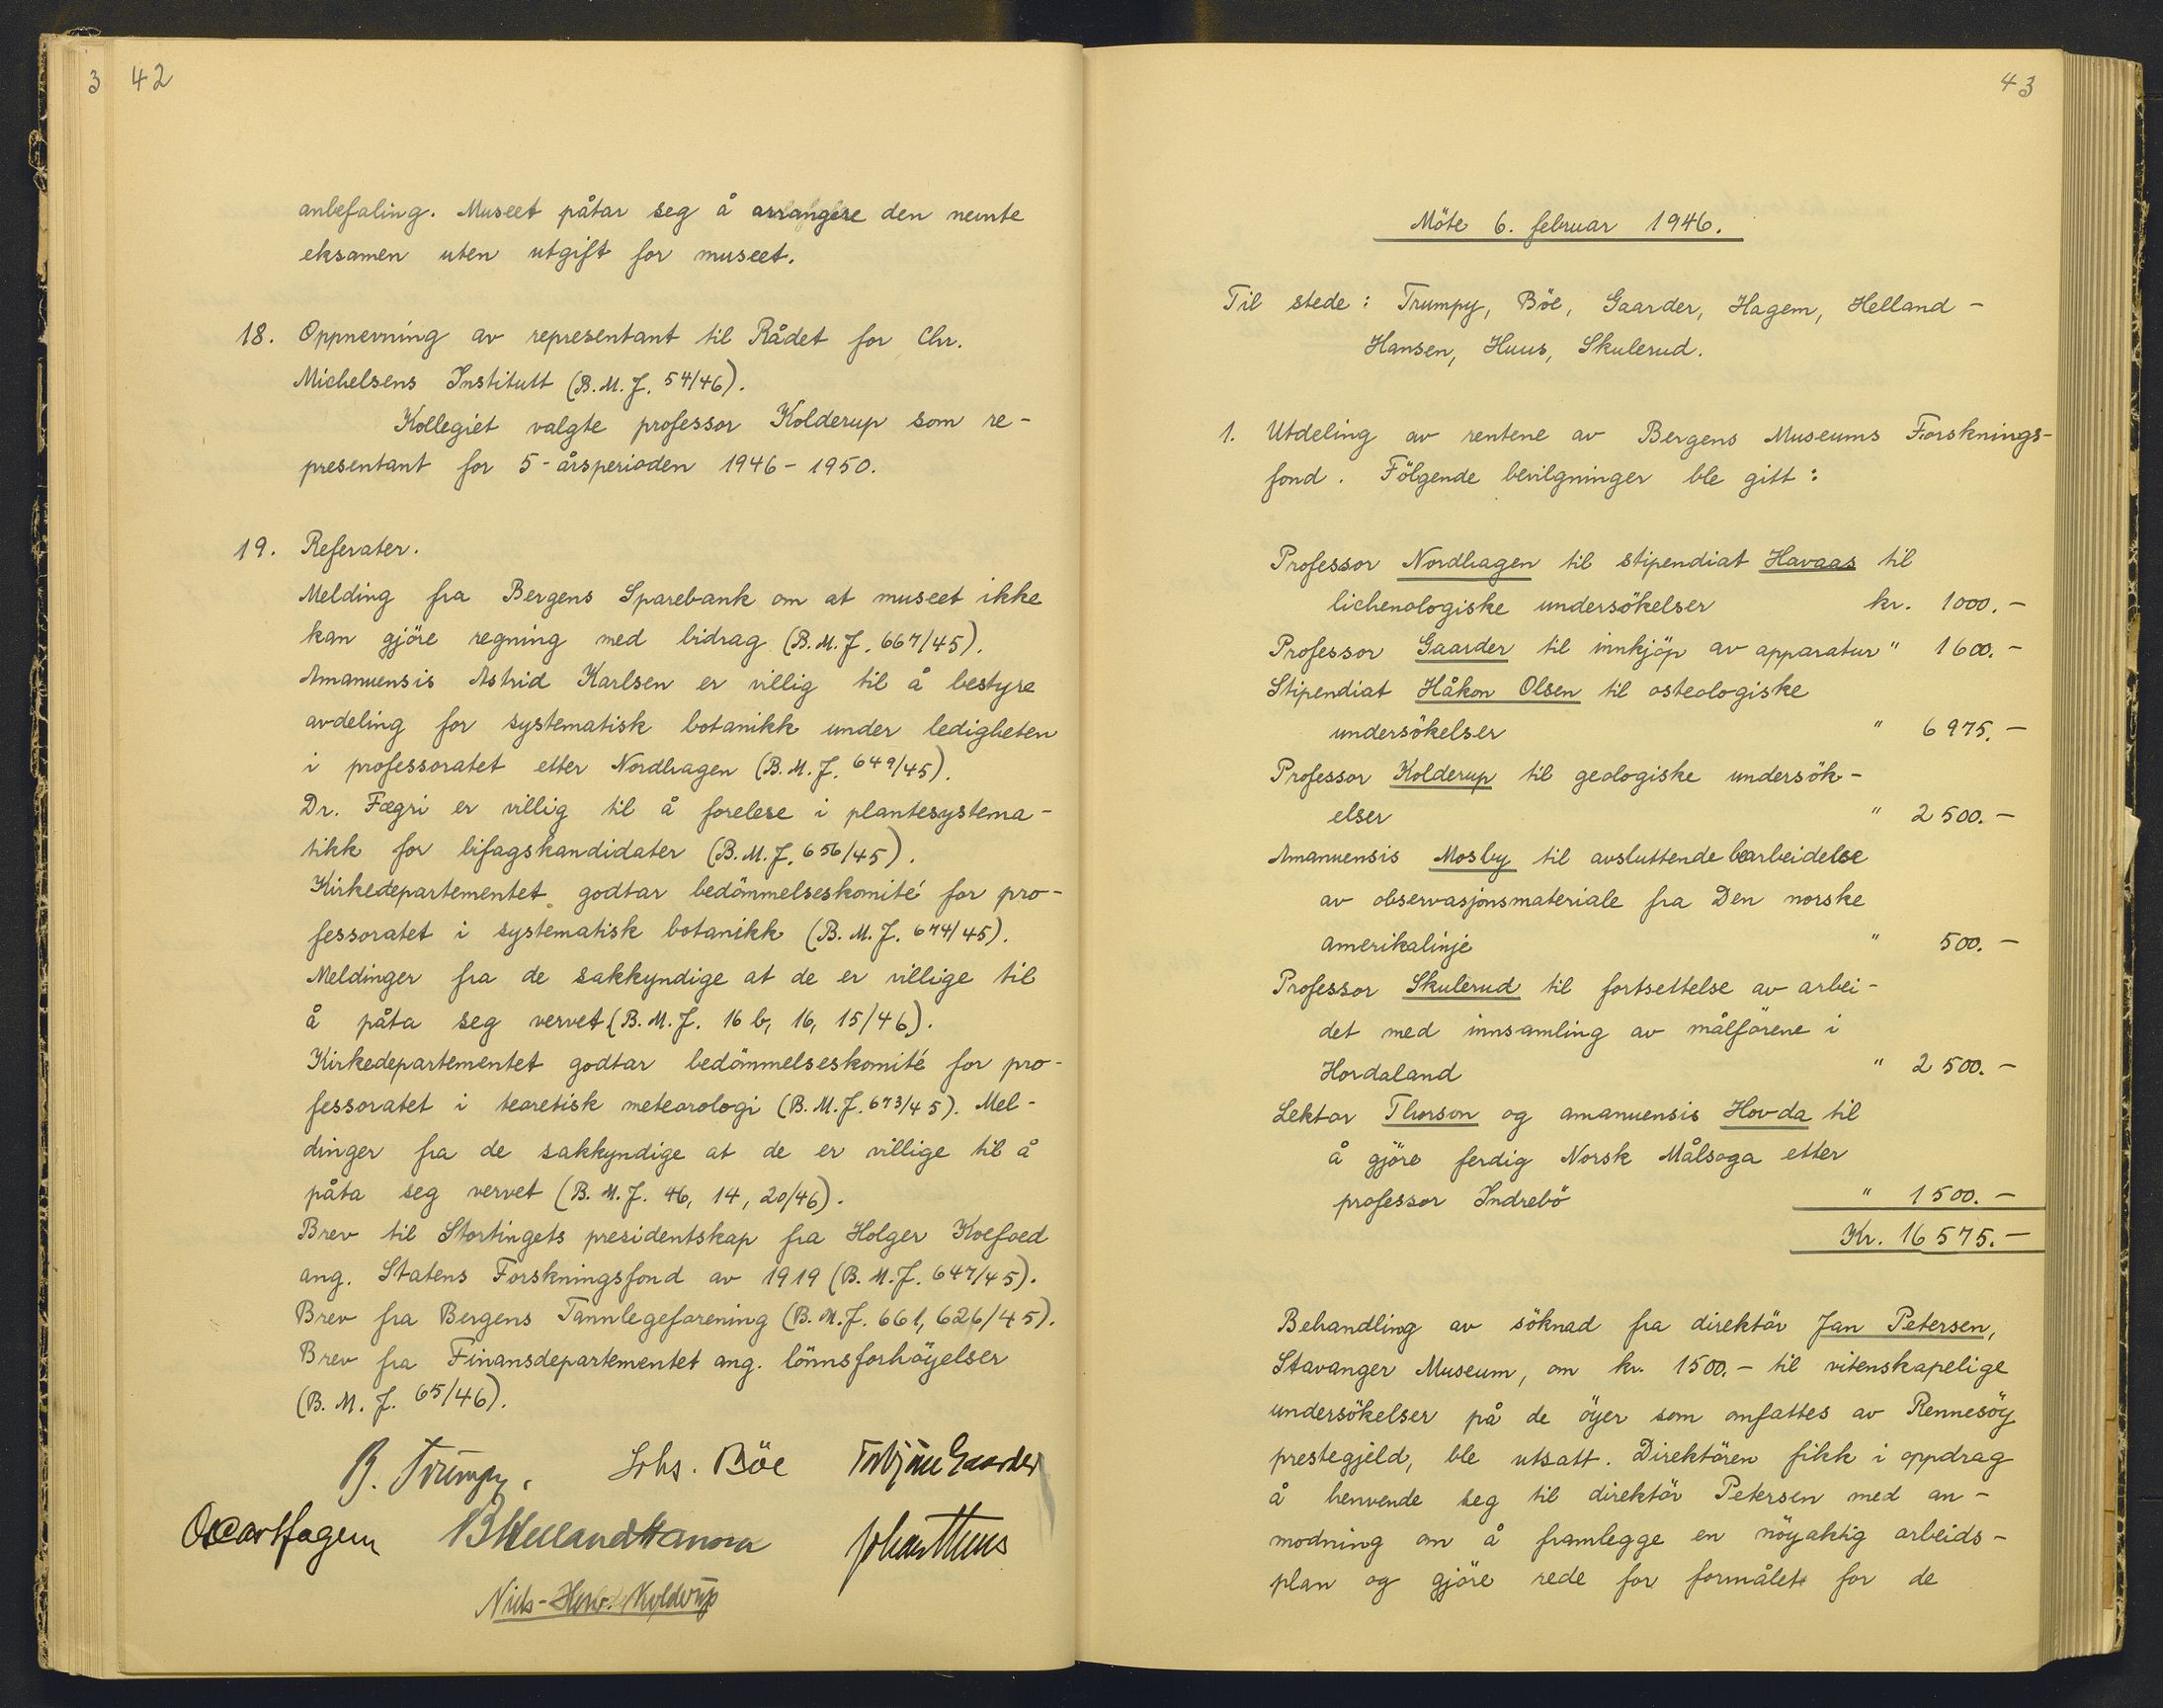 3 42
anbefaling. Museet påtar seg å arrangere den nevnte
eksamen uten utgift for museet.
18. Oppnevning av representant til Rådet for Chr.
Michelsens Institutt (B.M.J. 54/46).
Kollegiet valgte professor Kolderup som re-
presentant for 5-årsperioden 1946-1950.
19. Referater.
Melding fra Bergens Sparebank om at museet ikke
kan gjöre regning med bidrag (B.M.J. 667/45).
Amanuensis Astrid Karlsen er villig til å bestyre
avdeling for systematisk botanikk under ledigheten
i professoratet etter Nordhagen (B.M.J. 649/45).
Dr. Fægri er villig til å forelese i plantesystema-
tikk for bifagskandidater (B.M.J. 656/45).
Kirkedepartementet godtar bedömmelseskomité for pro-
fessoratet i systematisk botanikk (B.M.J. 674/45).
Meldinger fra de sakkyndige at de er villige til
å påta seg vervet (B.M.J. 16 b, 16, 15/46).
Kirkedepartementet godtar bedömmelseskomité for pro-
fessoratet i teoretisk meteorologi (B.M.J. 673/45). Mel-
dinger fra de sakkyndige at de er villige til å
påta seg vervet (B.M.J. 46, 14, 20/46).
Brev til Stortingets presidentskap fra Holger Koefoed
ang. Statens Forskningsfond av 1919 (B.M.J. 647/45).
Brev fra Bergens Tannlegeforening (B.M.J. 661, 626/45).
Brev fra Finansdepartementet ang. lönnsforhöyelser
(B.M.J. 65/46).
B. Trumpy. Johs. Böe Torbjörn Gaarder
Oscar Hagem B Helland Hansen Johan Huus
Niels-Henr. Kolderup
43
Möte 6. februar 1946.
Til stede: Trumpy, Böe, Gaarder, Hagem, Helland-
Hansen, Huus, Skulerud.
1. Utdeling av rentene av Bergens Museums Forsknings-
fond. Fölgende bevilgninger ble gitt:
Professor Nordhagen til stipendiat Havaas til
lichenologiske undersökelser kr. 1000.-
Professor Gaarder til innkjöp av apparatur " 1600.-
Stipendiat Håkon Olsen til osteologiske
undersökelser " 6975.-
Professor Kolderup til geologiske undersök-
elser " 2500.-
Amanuensis Mosby til avsluttende bearbeidelse
av observasjonsmateriale fra Den norske
amerikalinje " 500.-
Professor Skulerud til fortsettelse av arbei-
det med innsamling av målförene i
Hordaland " 2500.-
Lektor Thorson og amanuensis Hovda til
å gjöre ferdig Norsk Målsoga etter
professor Indrebö " 1500.-
Kr. 16575.-
Behandling av söknad fra direktör Jan Petersen,
Stavanger Museum, om kr. 1500.- til vitenskapelige
undersökelser på de öyer som omfattes av Rennesöy
prestegjeld, ble utsatt. Direktören fikk i oppdrag
å henvende seg til direktör Petersen med an-
modning om å framlegge en nöyaktig arbeids-
plan og gjöre rede for formålet for de